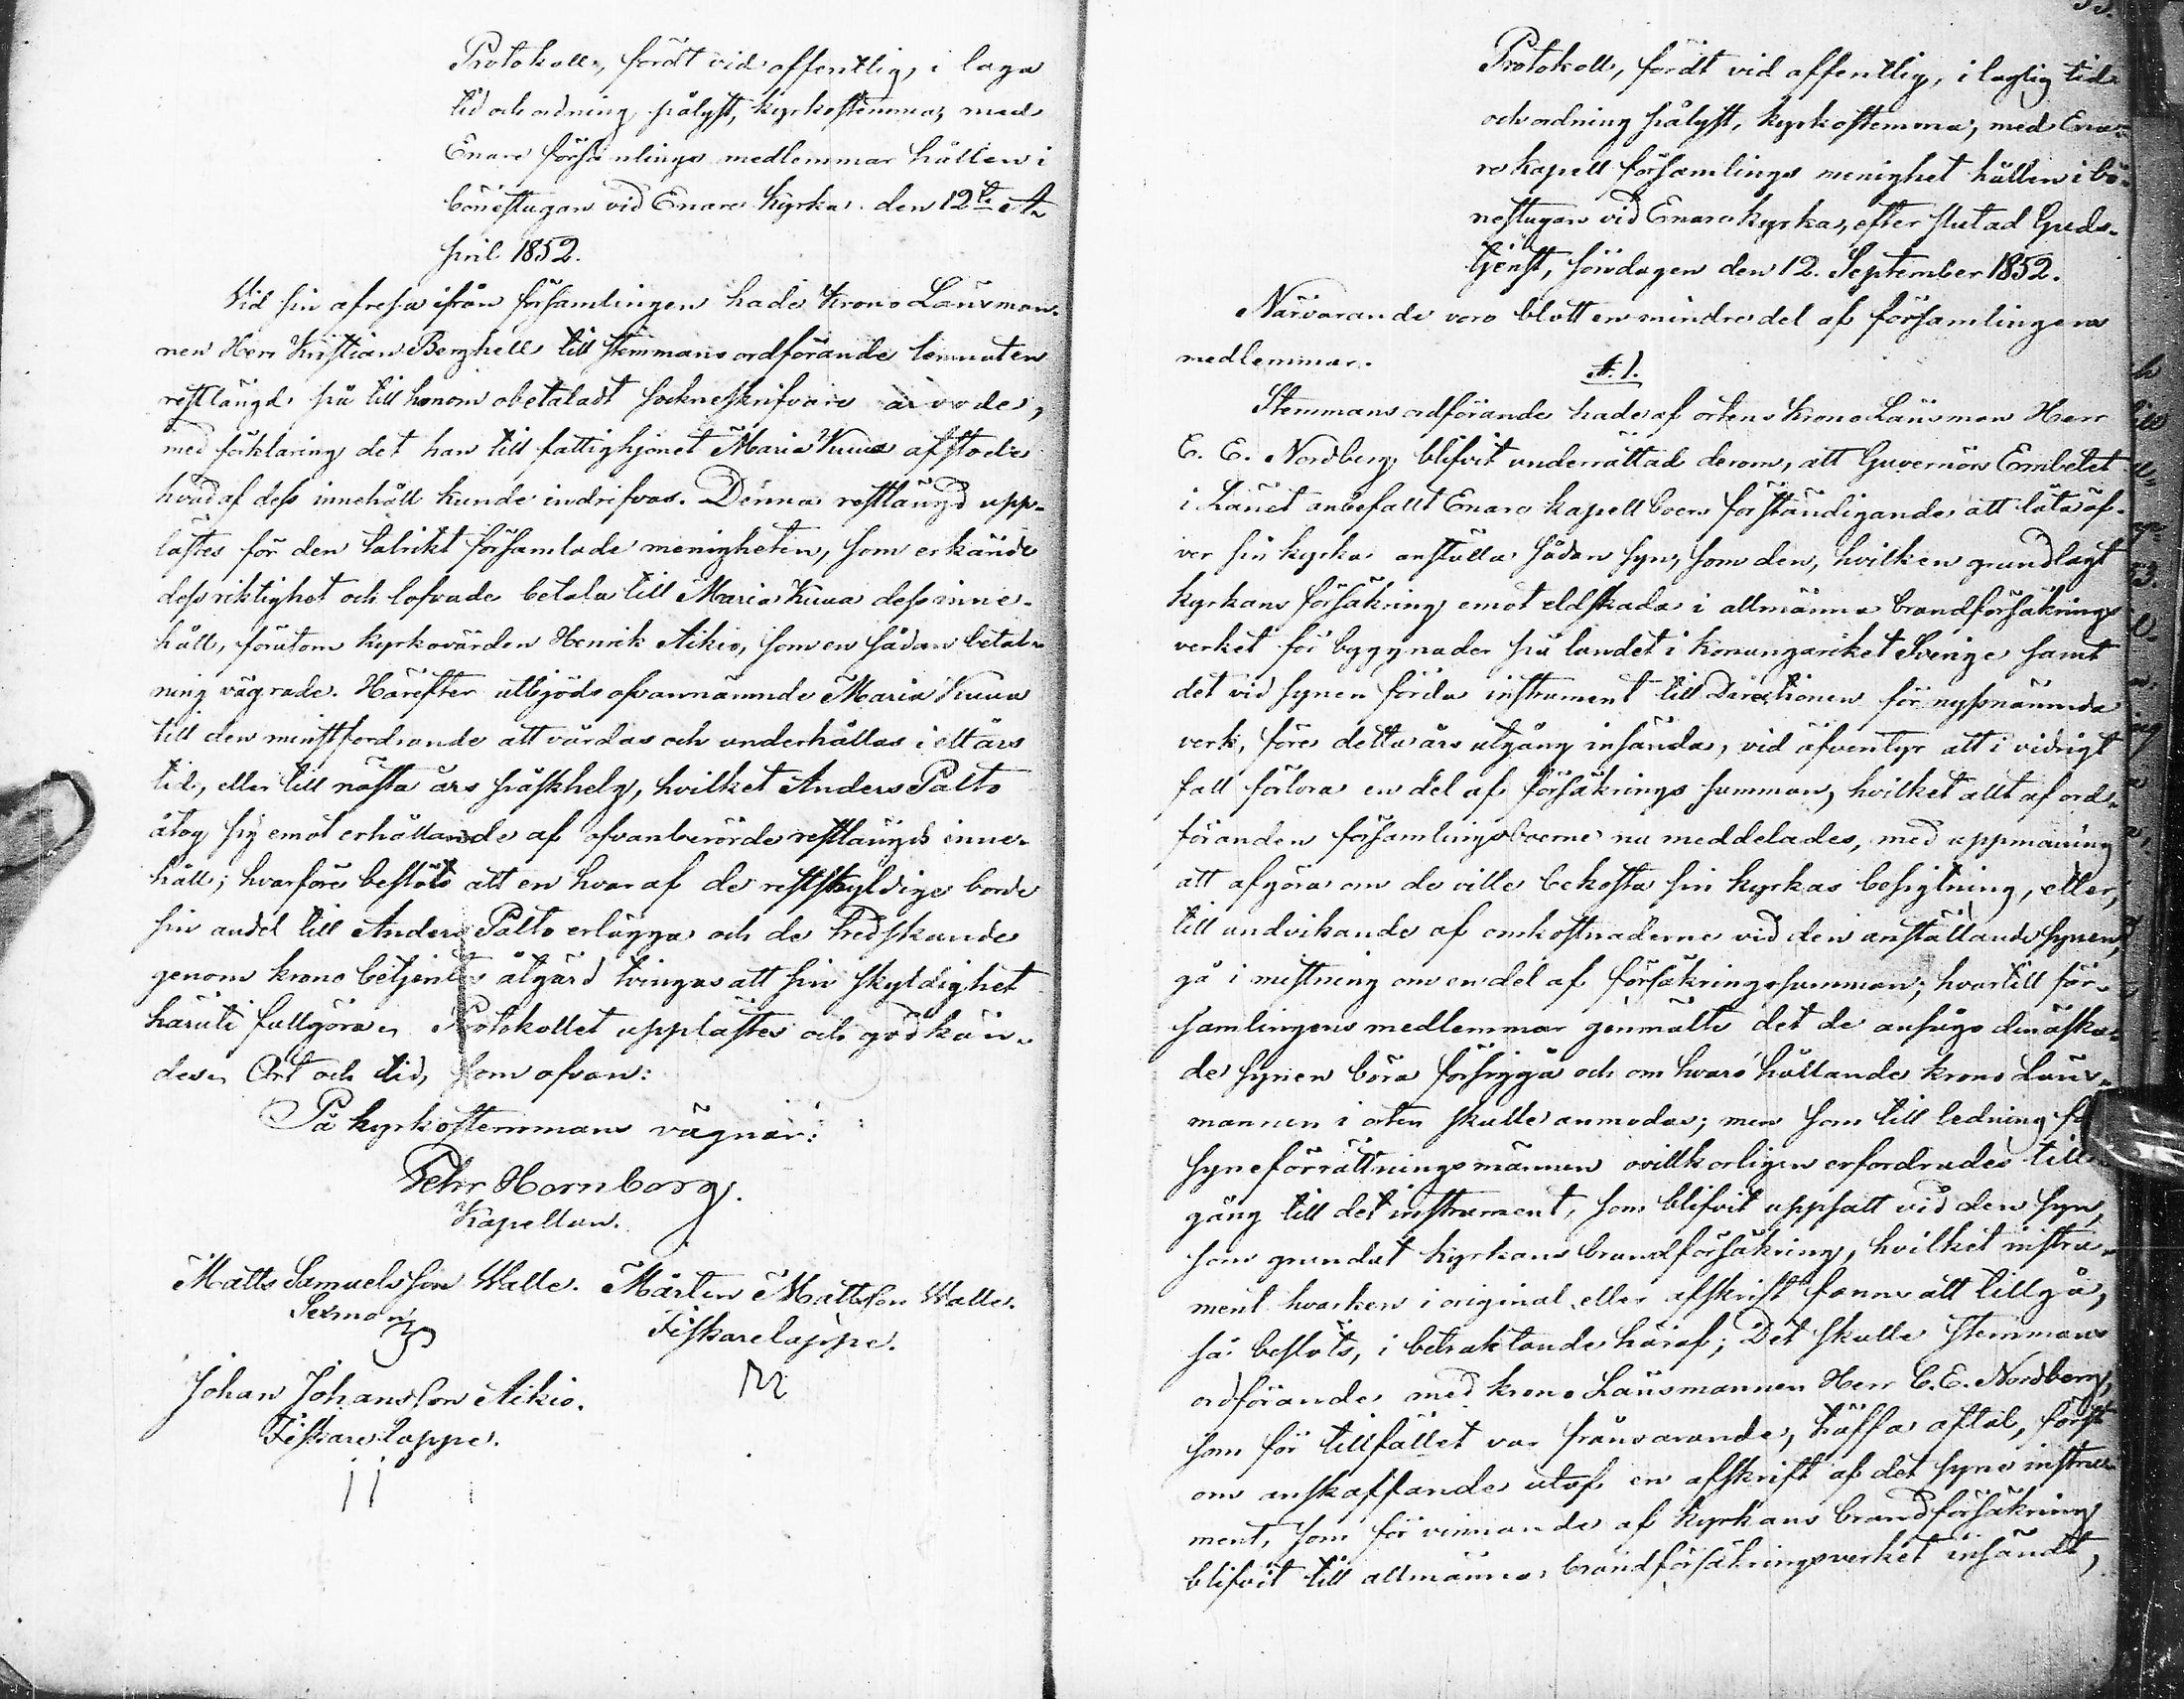 Protokoll, fördt vid offentlig, i laga
tid och ordning pålyst, kyrkostemma, med
Enare församlings medlemmar hållen i
bönestugan vid Enare kyrka den 12te A-
pril 1852.
Vid sin afresa ifrån församlingen hade Krono Länsman-
nen Herr Kristian Berghell till stemmans ordförande lemnat en
restlängd på till honom obetaladt sockneskrifvare arvode,
med förklaring det han till fattighjonet Maria Kuua afstode
hvad af dess innehåll kunde indrifvas. Denna restlängd upp-
lästes för den talrikt församlade menigheten, som erkände
dess riktighet och lofvade betala till Maria Kuua dess inne-
håll, förutom kyrkovärden Henrik Aikio, som en sådan betal-
ning vägrade. Härefter utbjöds ofvannämnde Maria Kuua
till den minstfordrande att vårdas och underhållas i ett års
tid, eller till nästa års påskhelg, hvilket Anders Palto
åtog sig emot erhållande af ofvanberörde restlängds inne-
håll; hvarföre beslöts att en hvar af de restskyldige borde
sin andel till Anders Palto erlägga och de tredskande
genom krono betjentes åtgärd tvingas att sin skyldighet
häruti fullgöra. Protokollet upplästes och godkän-
des. Ort och tid, som ofvan:
På kyrkostemmans vägnar:
Pehr Hornborg.
Kapellan.
Matts Samuelsson Walle. Mårten Mattsson Walle.
Sexman Fiskarelappe.
Johan Johansson Aikio.
Fiskarelappe.
Protokoll, fördt vid offentlig, i laglig tid
och ordning pålyst, kyrkostemma, med Ena-
re kapell församlings menighet hållen i bö-
nestugan vid Enare kyrka, efter slutad Guds-
tjenst, söndagen den 12. September 1852.
Närvarande voro blott en mindre del af församlingens
medlemmar.
§. 1.
Stemmans ordförande hade af ortens Krono Länsman Herr
C. E. Nordberg blifvit underrättad derom, att Guvernörs Embetet
i Länet anbefallt Enare kapellboers förständigande att låta öf-
ver sin kyrka anställa sådan syn, som den, hvilken grundlagt
kyrkans försäkring emot eldskada i allmänna brandförsäkrings
verket för byggnader på landet i konungariket Sverige samt
det vid synen förda instrument till Directionen för nyssnämnda
verk, före detta års utgång insända, vid äfventyr att i vidrigt
fall förlora en del af försäkrings summan, hvilket allt af ord-
föranden församlingsboerne nu meddelades, med uppmaning
att afgöra om de ville bekosta sin kyrkas besigtning, eller,
till undvikande af omkostnaderne vid den anställande synen,
gå i mistning om en del af försäkringssumman; hvartill för-
samlingens medlemmar genmälte det de ansågo den äska-
de synen böra försiggå och om hvars hållande krono Läns-
mannen i orten skulle anmodas; men som till ledning
syneförrättningsmännen ovillkorligen erfordrades till-
gång till det instrument, som blifvit uppsatt vid den syn,
som grundat kyrkans brandförsäkring, hvilket instru-
ment hvarken i original eller afskrift fanns att tillgå,
så beslöts, i betraktande häraf; Det skulle stemmans
ordförande med krono Länsmannen Herr C. E. Nordberg,
som för tillfället var frånvarande, träffa aftal, först
om anskaffande utaf en afskrift af det syne instru-
ment, som för vinnande af kyrkans brandförsäkring
blifvit till allmänna brandförsäkringsverket insändt,